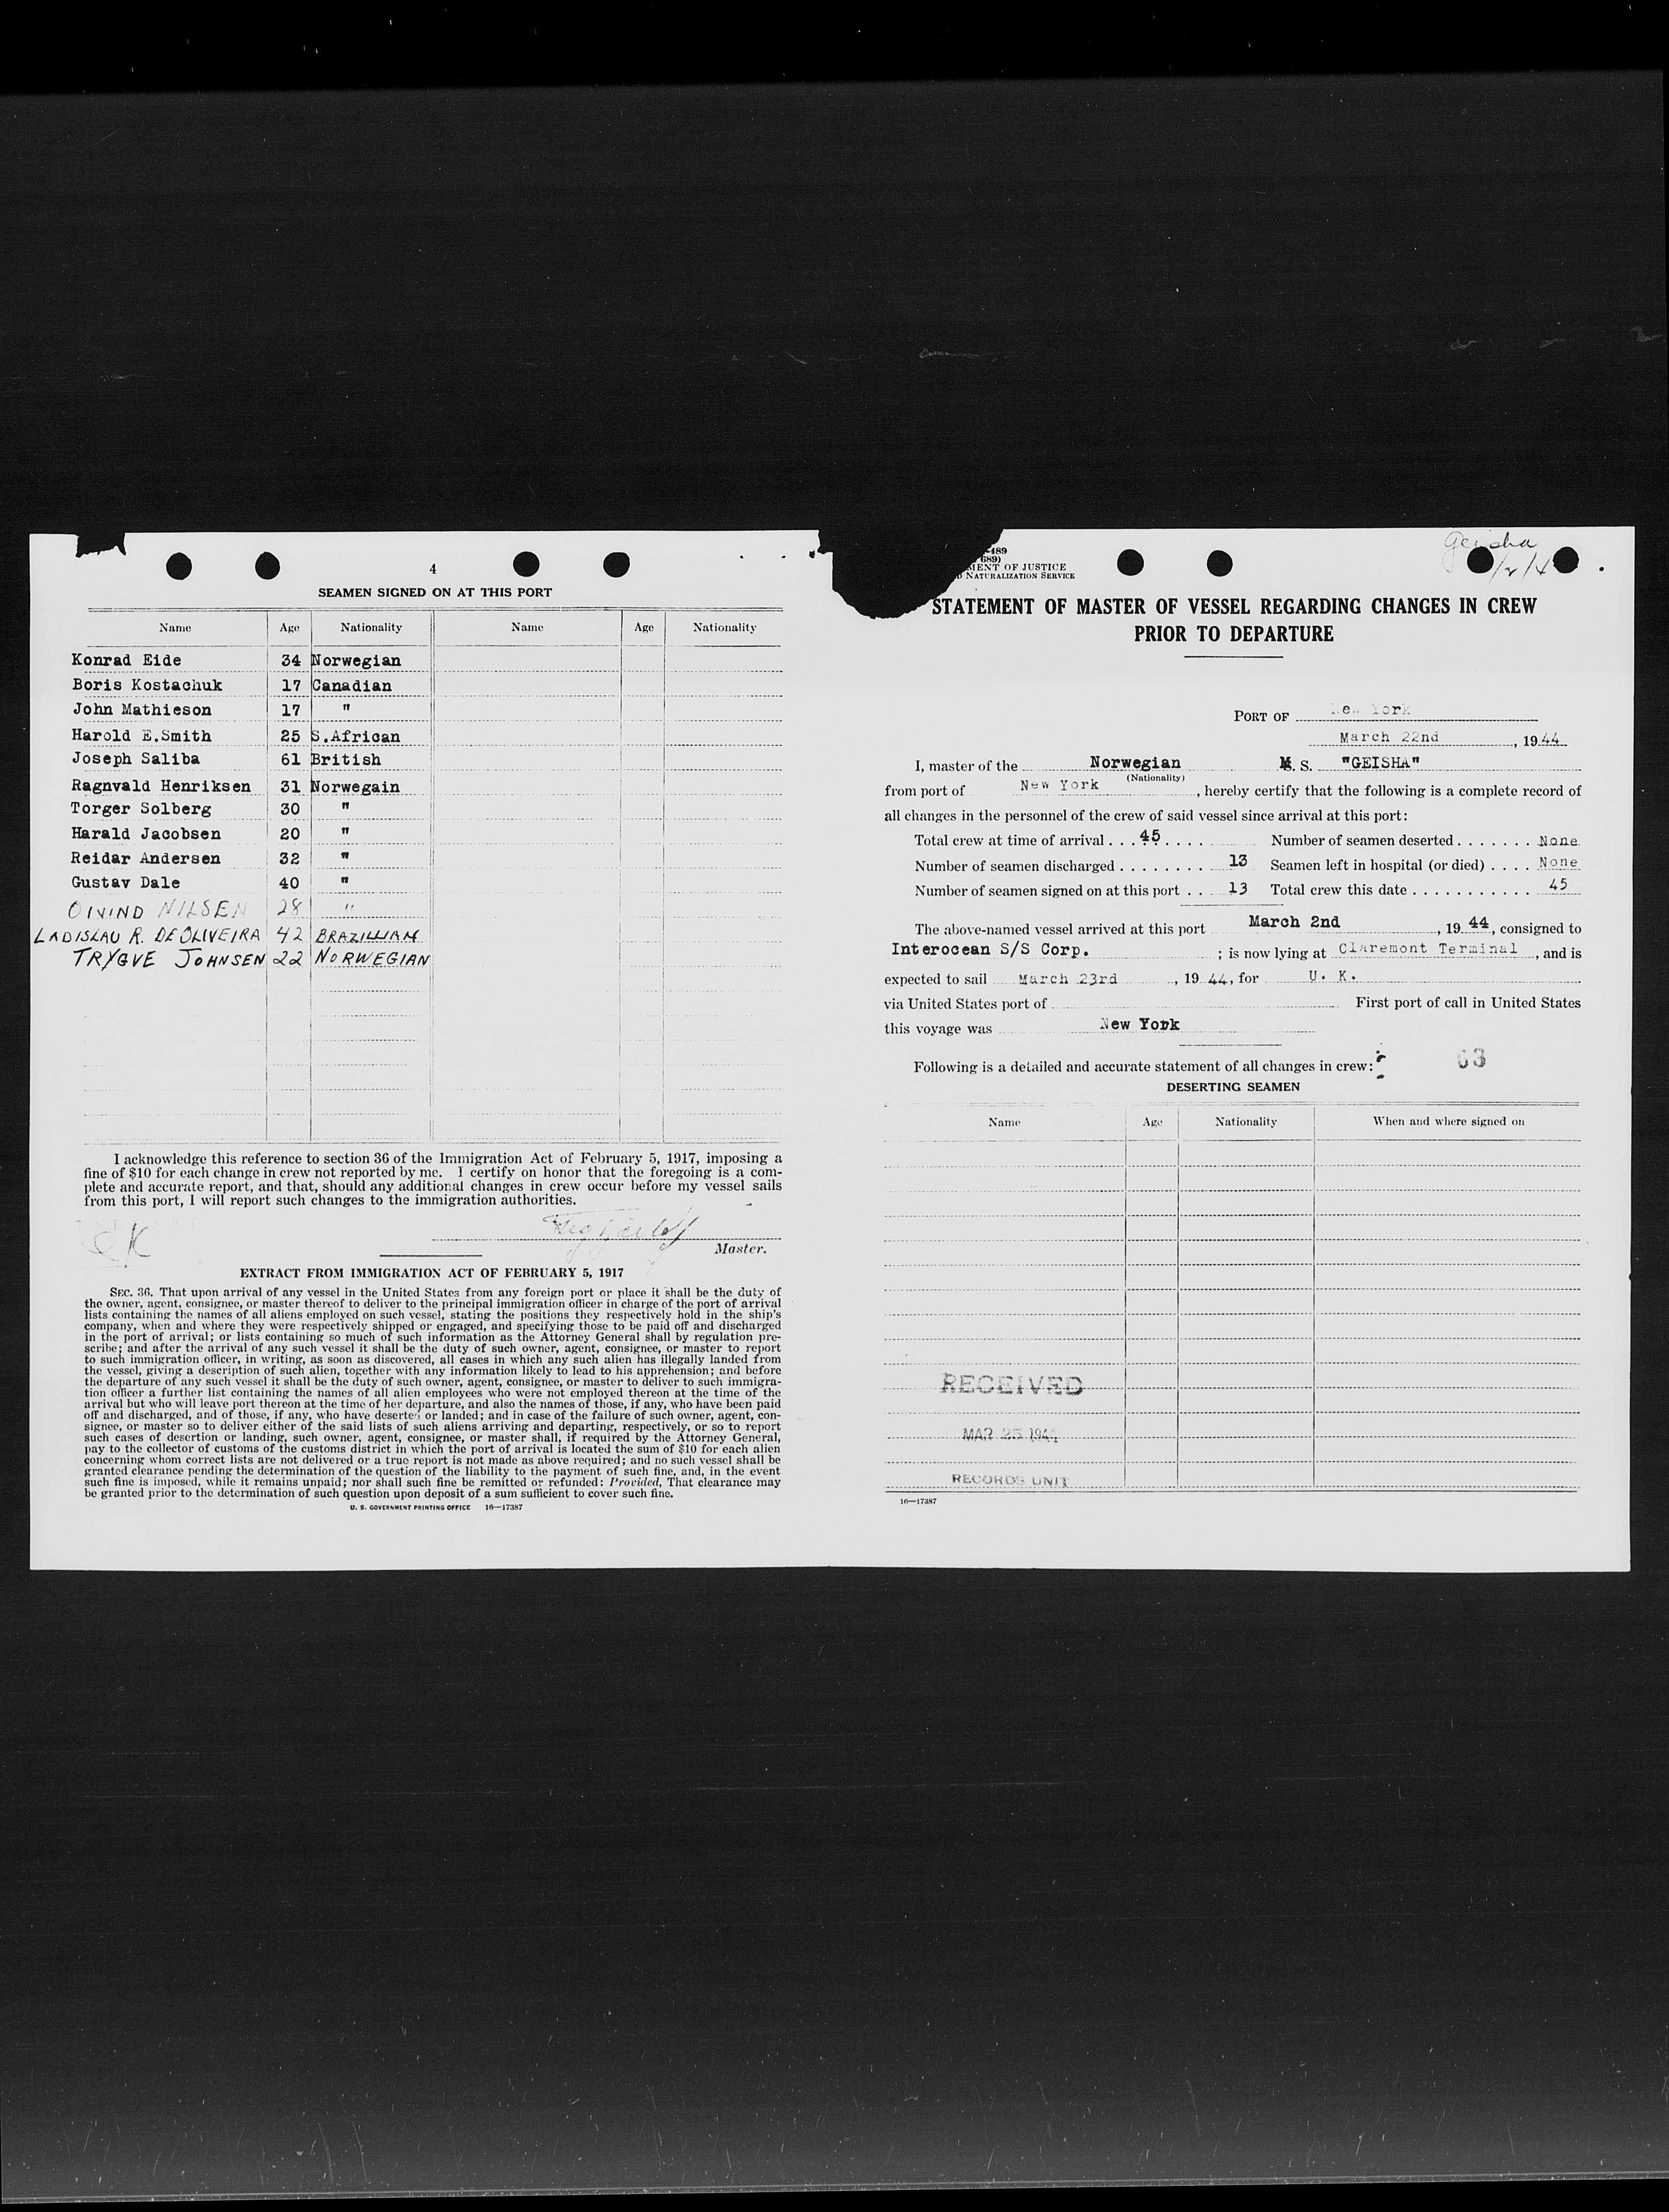 4
SEAMEN SIGNED ON AT THIS PORT
Name Age Nationality Name Age Nationality
Konrad Eide 34 Norwegian
Boris Kostachuk 17 Canadian
John Mathieson 17 "
Harold E.Smith 25 S.African
Joseph Saliba 61 British
Ragnvald Henriksen 31 Norwegain
Torger Solberg 30 "
Harald Jacobsen 20 "
Reidar Andersen 32 "
Gustav Dale 40 "
OIVIND NILSEN 28 "
LADISLAU R. DE OLIVEIRA 42 BRAZILLIAN
TRYGVE JOHNSEN 22 NORWEGIAN
I acknowledge this reference to section 36 of the Immigration Act of February 5, 1917, imposing a
fine of $10 for each change in crew not reported by me. I certify on honor that the foregoing is a com-
plete and accurate report, and that, should any additional changes in crew occur before my vessel sails
from this port, I will report such changes to the immigration authorities.
Master.
EXTRACT FROM IMMIGRATION ACT OF FEBRUARY 5, 1917
SEC. 36. That upon arrival of any vessel in the United States from any foreign port or place it shall be the duty of
the owner, agent, consignee, or master thereof to deliver to the principal immigration officer in charge of the port of arrival
lists containing the names of all aliens employed on such vessel, stating the positions they respectively hold in the ship's
company, when and where they were respectively shipped or engaged, and specifying those to be paid off and discharged
in the port of arrival; or lists containing so much of such information as the Attorney General shall by regulation pre-
scribe; and after the arrival of any such vessel it shall be the duty of such owner, agent, consignee, or master to report
to such immigration officer, in writing, as soon as discovered, all cases in which any such alien has illegally landed from
the vessel, giving a description of such alien, together with any information likely to lead to his apprehension; and before
the departure of any such vessel it shall be the duty of such owner, agent, consignee, or master to deliver to such immigra-
tion officer a further list containing the names of all alien employees who were not employed thereon at the time of the
arrival but who will leave port thereon at the time of her departure, and also the names of those, if any, who have been paid
off and discharged, and of those, if any, who have deserted or landed; and in case of the failure of such owner, agent, con-
signee, or master so to deliver either of the said lists of such aliens arriving and departing, respectively, or so to report
such cases of desertion or landing, such owner, agent, consignee, or master shall, if required by the Attorney General,
pay to the collector of customs of the customs district in which the port of arrival is located the sum of $10 for each alien
concerning whom correct lists are not delivered or a true report is not made as above required; and no such vessel shall be
granted clearance pending the determination of the question of the liability to the payment of such fine, and, in the event
such fine is imposed, while it remains unpaid; nor shall such fine be remitted or refunded: Provided, That clearance may
be granted prior to the determination of such question upon deposit of a sum sufficient to cover such fine.
U. S. GOVERNMENT PRINTING OFFICE 16—17387
Geisha
-489
689)
MENT OF JUSTICE
NATURALIZATION SERVICE
STATEMENT OF MASTER OF VESSEL REGARDING CHANGES IN CREW
PRIOR TO DEPARTURE
PORT OF New York
March 22nd, 1944
I, master of the Norwegian M. S. "GEISHA"
(Nationality)
from port of New York, hereby certify that the following is a complete record of
all changes in the personnel of the crew of said vessel since arrival at this port:
Total crew at time of arrival . . . 45 . . . . Number of seamen deserted . . . . . . . None
Number of seamen discharged . . . . . . . . 13 Seamen left in hospital (or died) . . . . None
Number of seamen signed on at this port . . 13 Total crew this date . . . . . . . . . . . 45
The above-named vessel arrived at this port March 2nd, 1944, consigned to
Interocean S/S Corp. ; is now lying at Claremont Terminal, and is
expected to sail March 23rd, 1944, for U. K.
via United States port of First port of call in United States
this voyage was New York
Following is a detailed and accurate statement of all changes in crew: 63
DESERTING SEAMEN
Name Age Nationality When and where signed on
RECEIVED
MAR 25 1944
RECORDS UNIT
16—17387